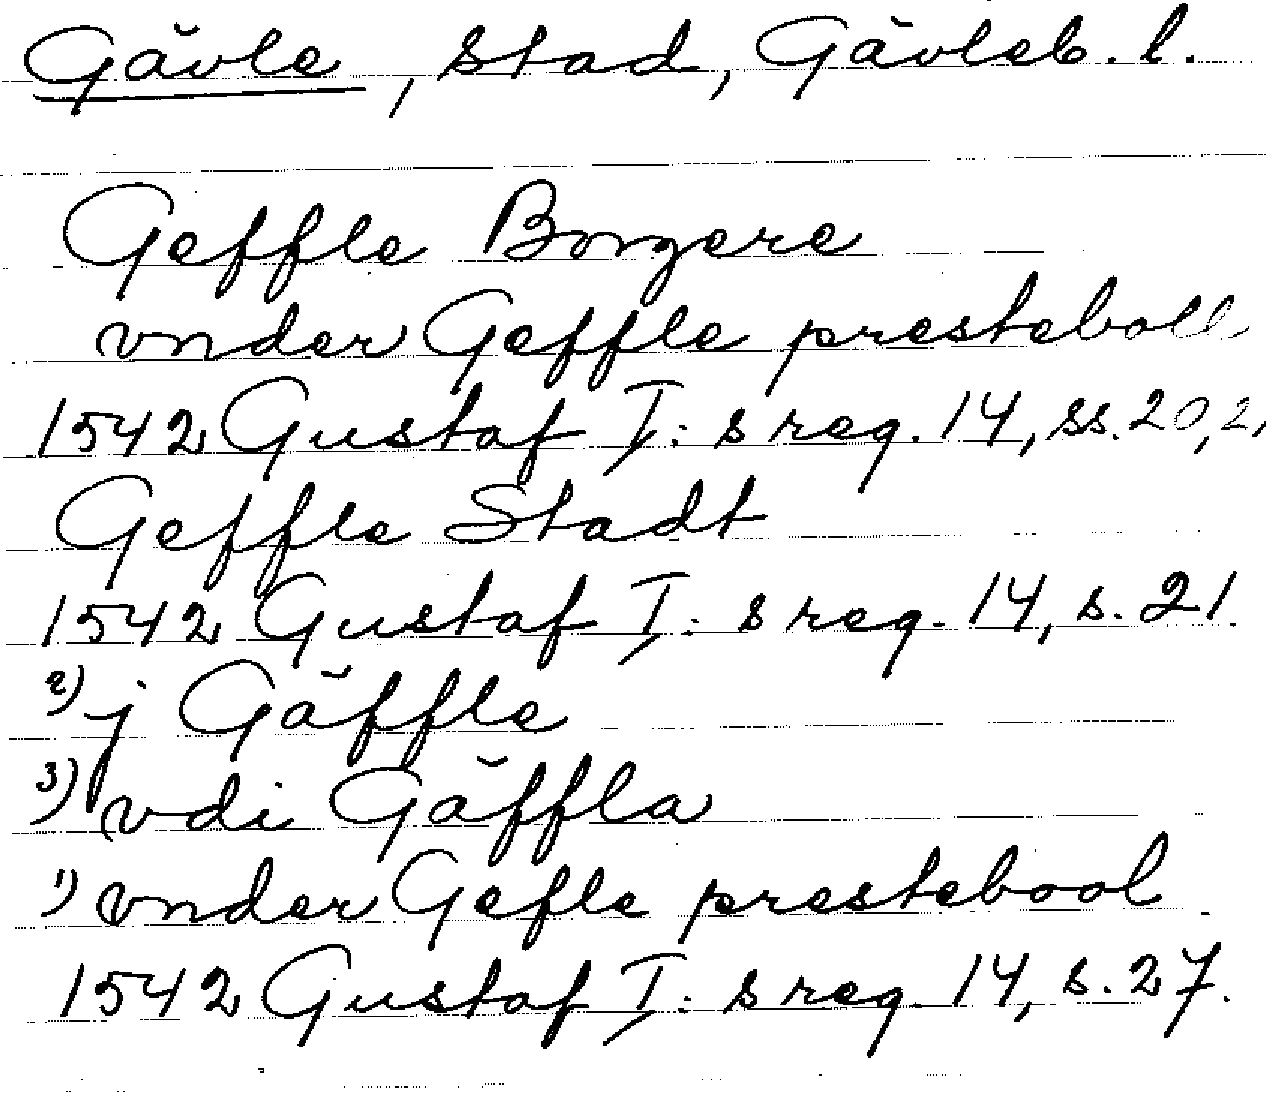 Gävle, stad, Gävleb. l.
Geffle Borgere
vnder Geffle presteboll
1542 Gustaf I:s reg. 14, ss. 20, 2
Geffle Stadt
1542 Gustaf I:s reg. 14, s. 21.
2) j Gäffle
3) vdi Gäffla
1) vnder Gefle prestebool
1542 Gustaf I:s reg. 14, s. 27.